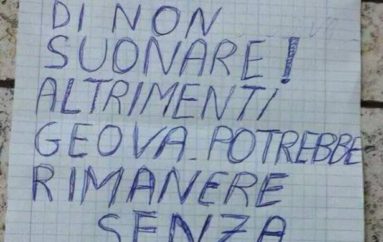 DI NON
SUONARE!
ALTRIMENTI
GEOVA. POTREBBE
RIMANERE
SENZA